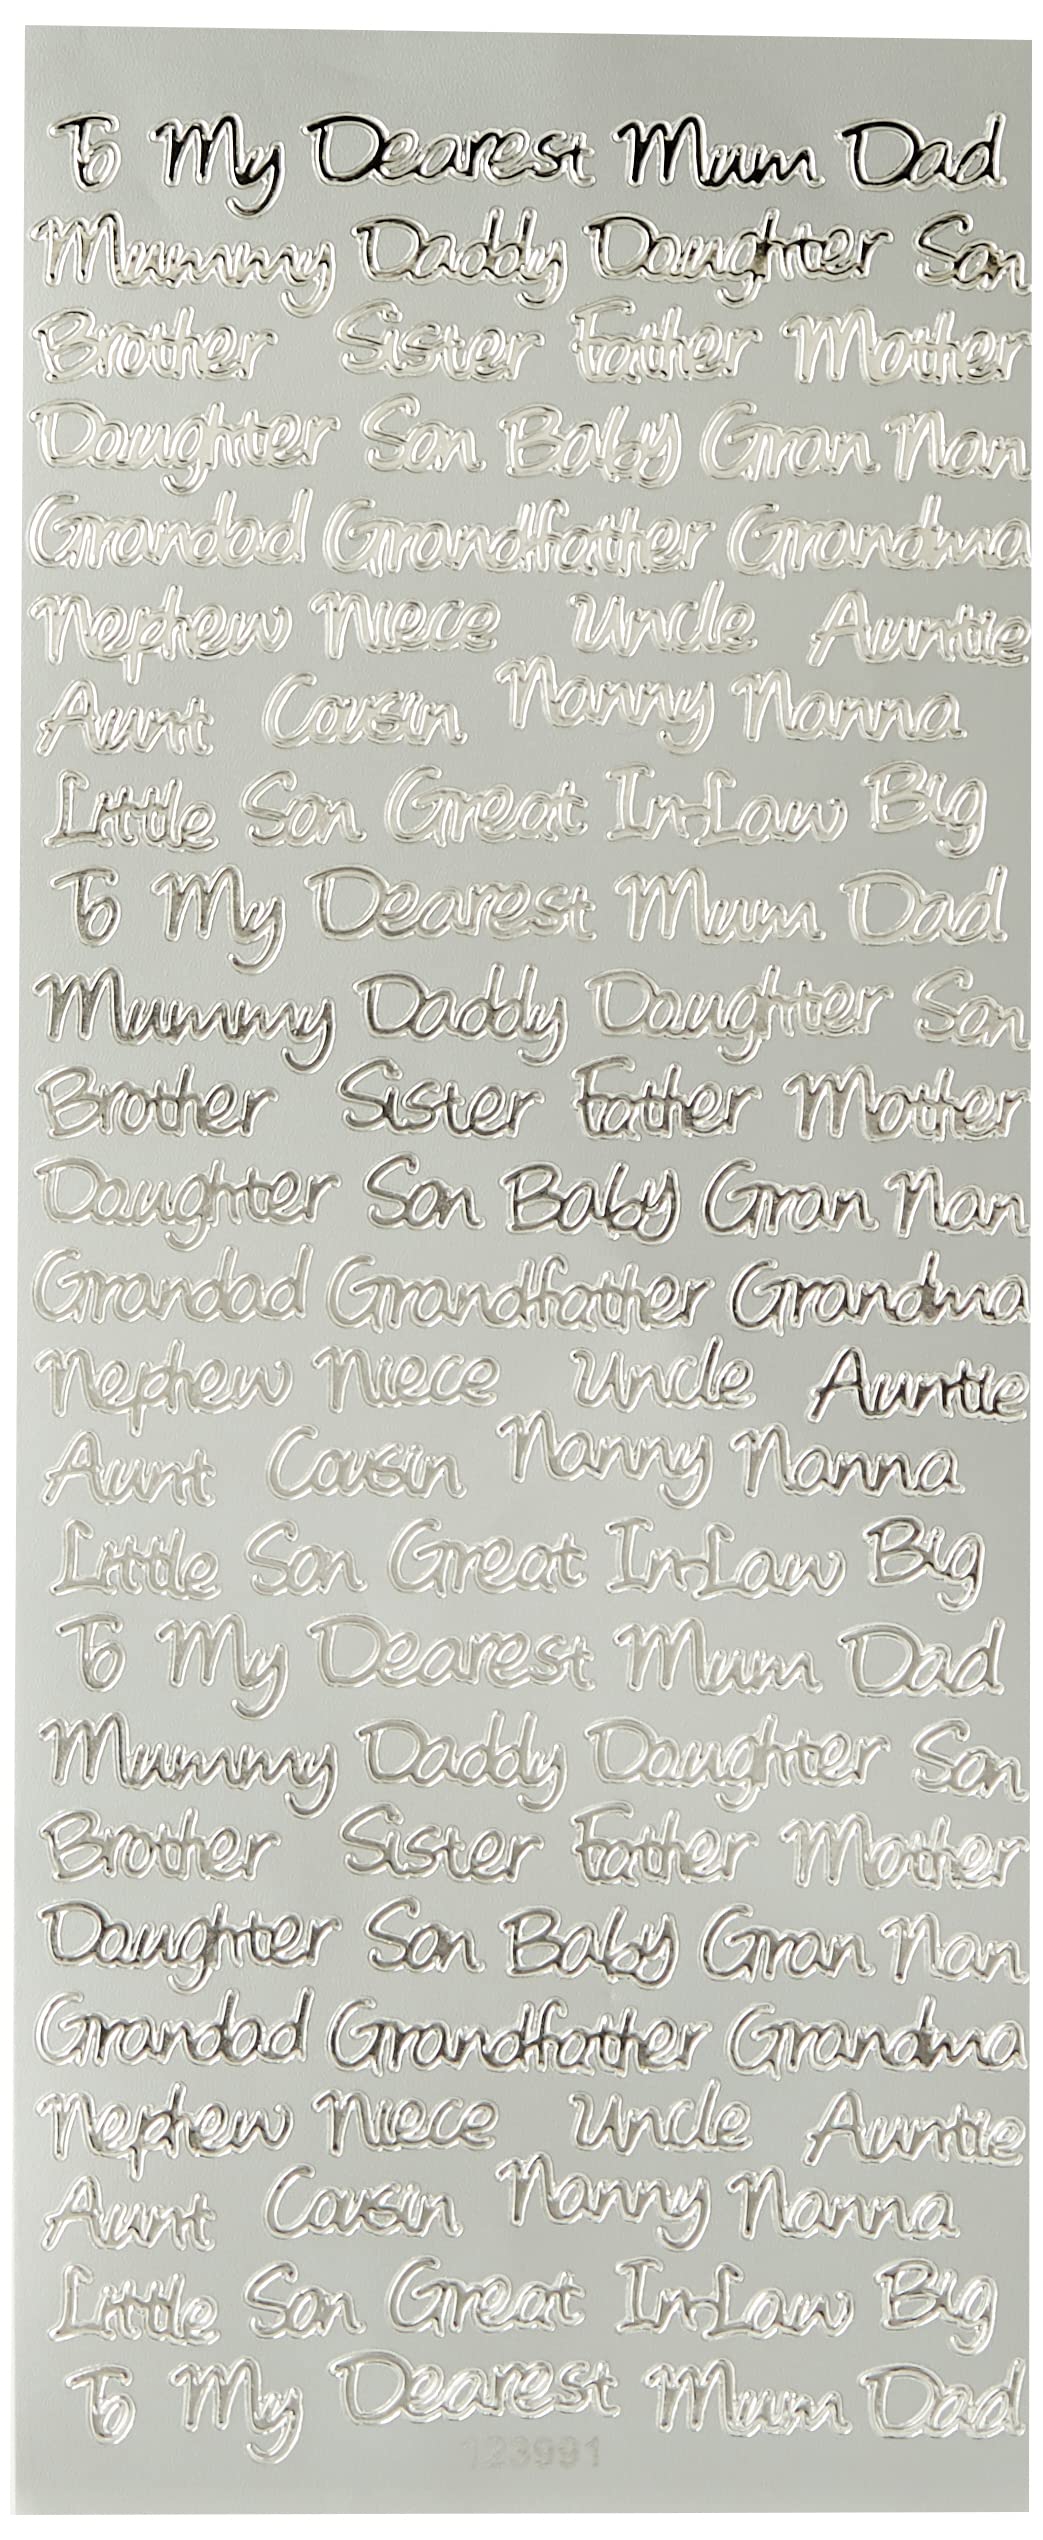 To My Dearest Mum Dad
Mummy Daddy Daughter Son
Brother Sister Father Mother
Daughter Son Baby Gran Nan
Grandad Grandfather Grandma
Nephew Niece Uncle Auntie
Aunt Cousin Nanny Nanna
Little Son Great In-Law Big
To My Dearest Mum Dad
Mummy Daddy Daughter Son
Brother Sister Father Mother
Daughter Son Baby Gran Nan
Grandad Grandfather Grandma
Nephew Niece Uncle Auntie
Aunt Cousin Nanny Nanna
Little Son Great In-Law Big
To My Dearest Mum Dad
Mummy Daddy Daughter Son
Brother Sister Father Mother
Daughter Son Baby Gran Nan
Grandad Grandfather Grandma
Nephew Niece Uncle Auntie
Aunt Cousin Nanny Nanna
Little Son Great In-Law Big
To My Dearest Mum Dad
123991